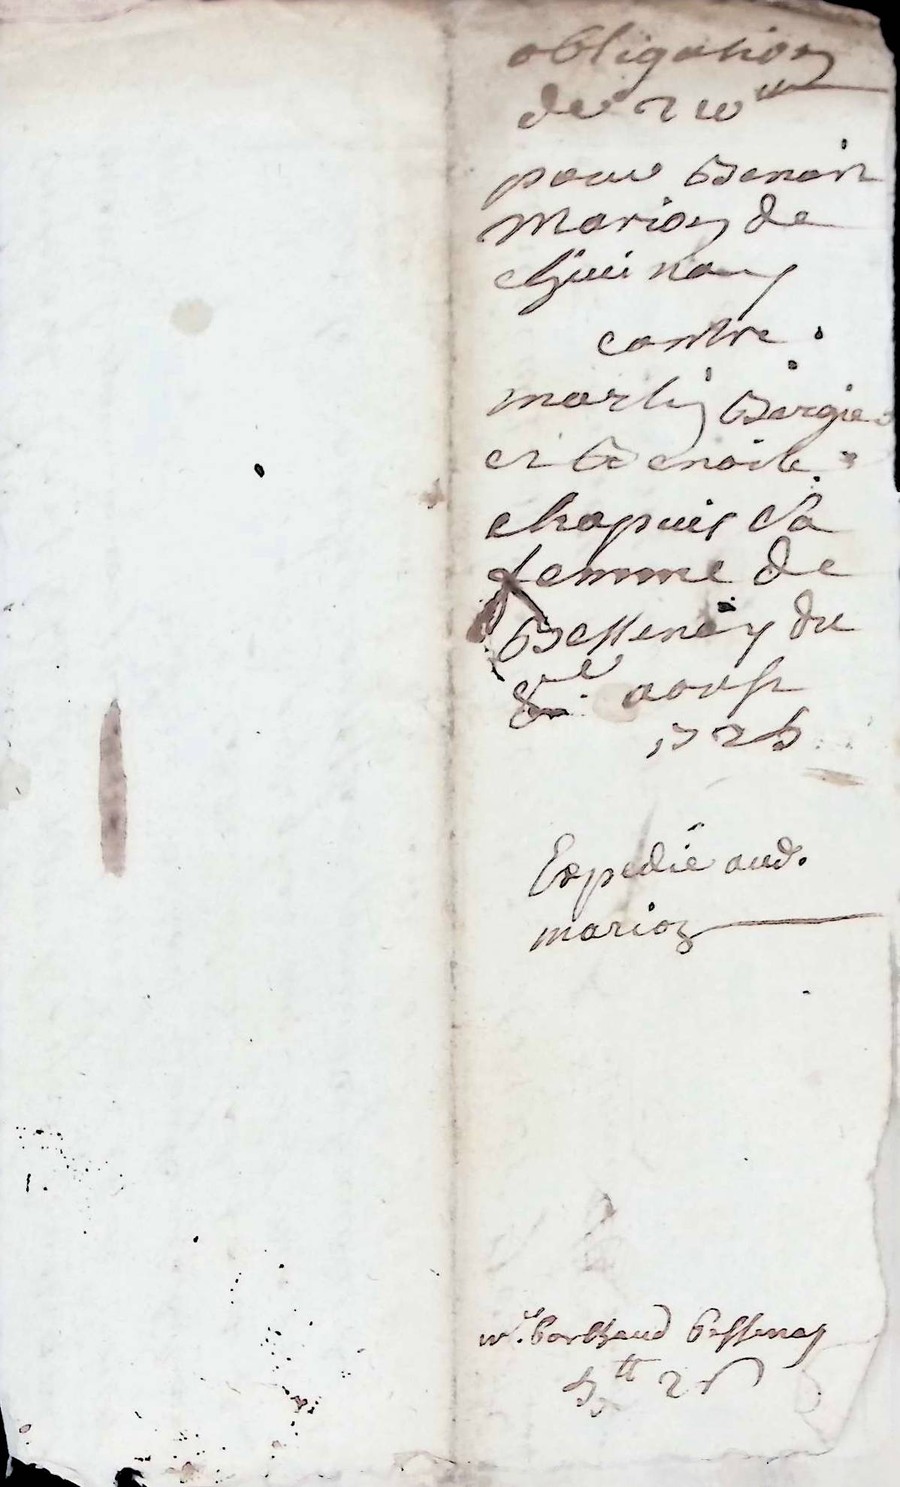 obligation
de 210ᵗᵗ
pour Benoit
Marion de
contre
martin Bergier
et Benoite
chapuis Sa
femme de
Bessenay du
8ᵉ aoust
1725
Expedié aud.
marion
Bessenay
5ᵗᵗ 2ˢ